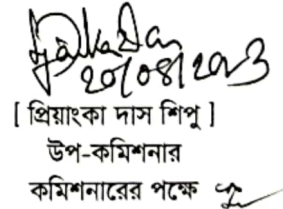 ২০/০৪/২০২৩
[ প্রিয়াংকা দাস শিপু ]
উপ-কমিশনার
কমিশনারের পক্ষে